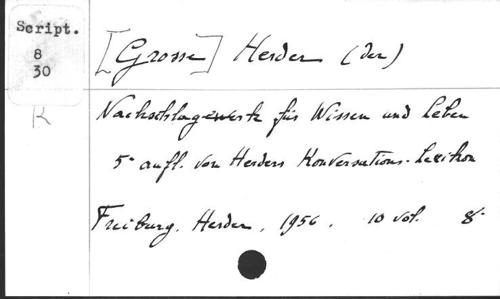 Script.
8
30
R
[Grosse] Herder (der)
Nachschlagewerk für Wissen und Leben
5° aufl. von Herders Konversations-Lexikon
Freiburg. Herder, 1956. 10 vol. 8°